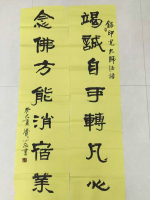 錄印光大師法語
竭誠自可轉凡心
念佛方能消宿業